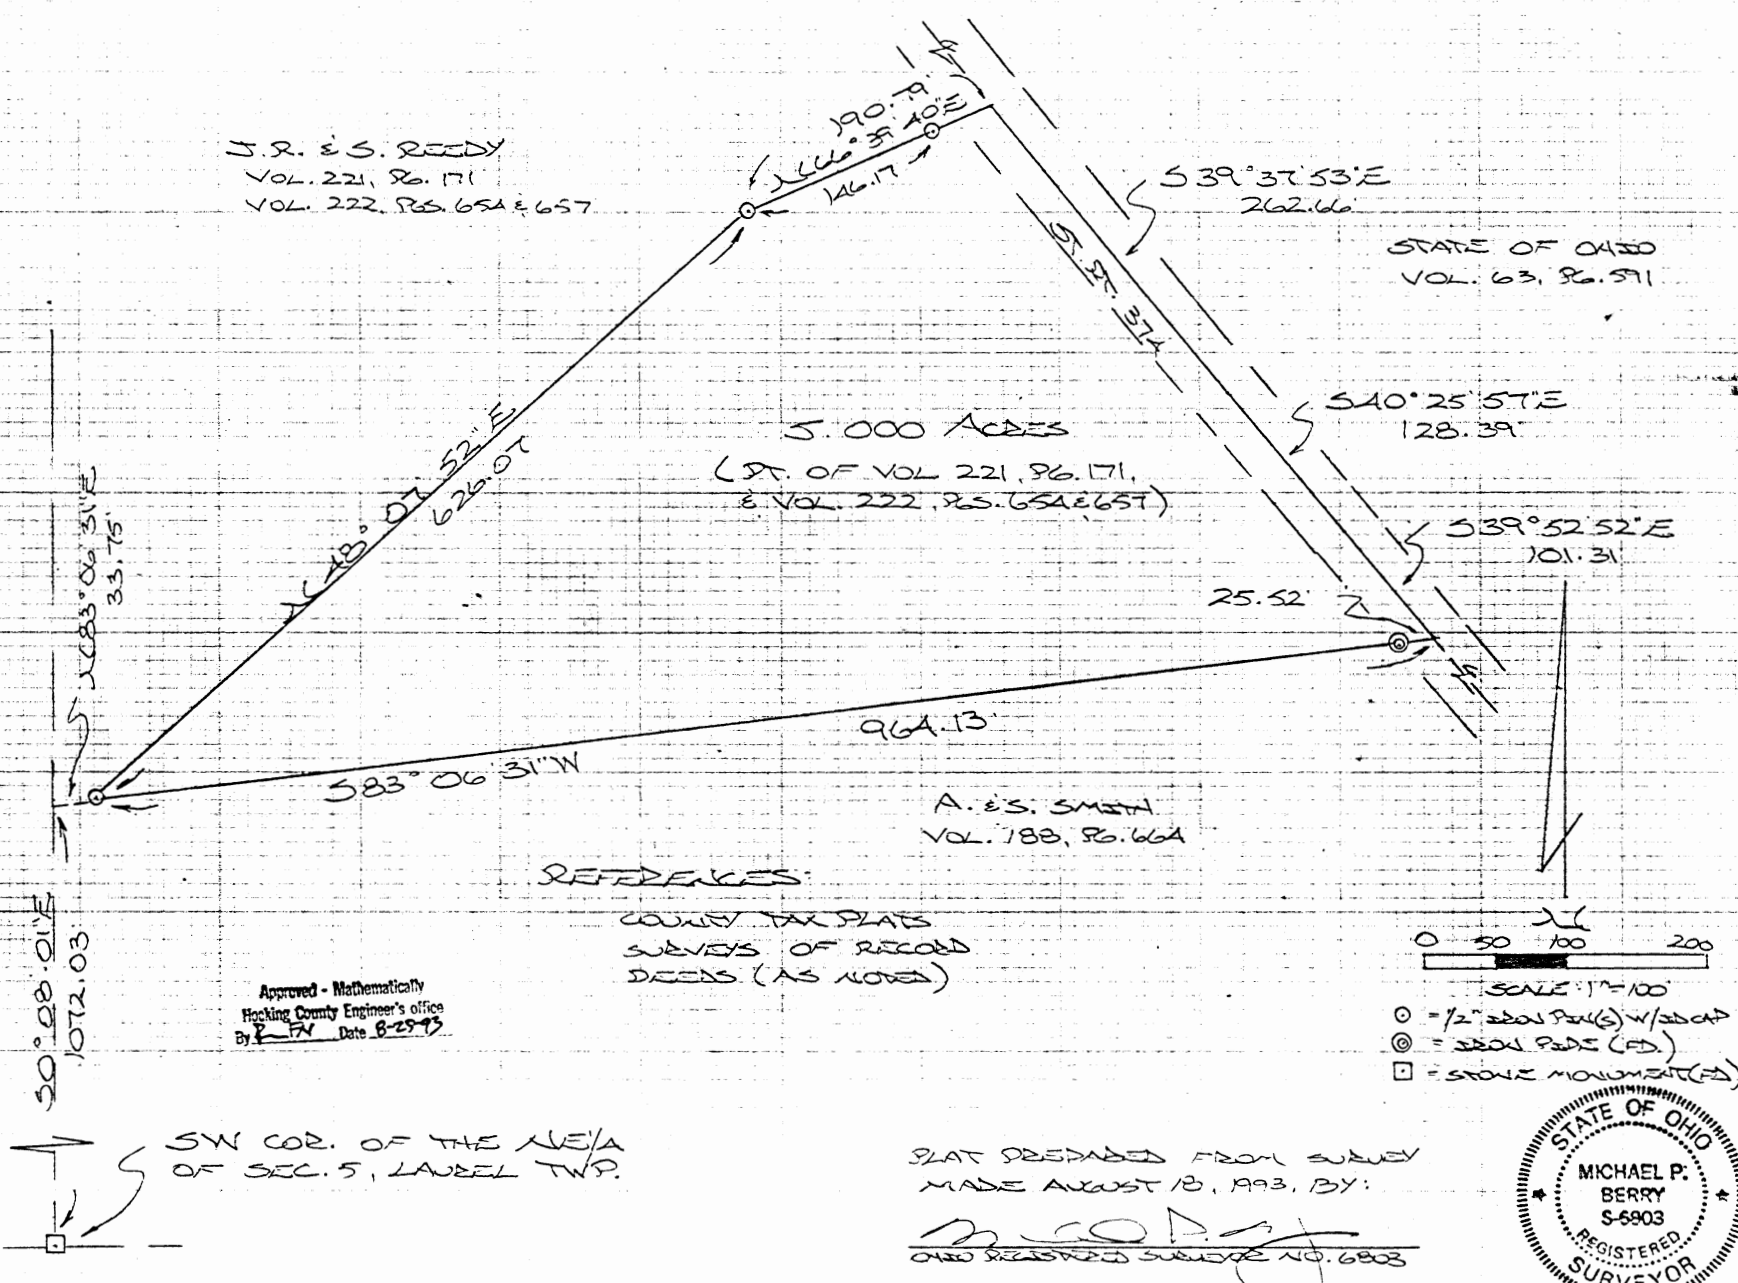 J.R. & S. REEDY
VOL. 221, PG. 171
VOL. 222, PGS. 654 & 657
190.79'
N66°39'40"E
146.17'
S39°37'53"E
262.66'
STATE OF OHIO
VOL. 63, PG. 591
ST. RT. 374
S40°25'57"E
128.39'
5.000 ACRES
(PT. OF VOL 221, PG. 171,
& VOL. 222, PGS. 654 & 657)
N48°07'52"E
626.07
N83°06'31"E
33.75'
S39°52'52"E
101.31
25.52'
964.13'
S83°06'31"W
A. & S. SMITH
VOL. 188, PG. 664
REFERENCES:
COUNTY TAX PLATS
SURVEYS OF RECORD
DEEDS (AS NOTED)
S0°08'01"E
1072.03'
Approved - Mathematically
Hocking County Engineer's office
By Date 8-25-93
N
0 50 100 200
SCALE: 1"=100'
= 1/2" IRON PIN(S) W/ID CAP
= IRON PIPE (FD.)
= STONE MONUMENT (FD)
SW COR. OF THE NE/4
OF SEC. 5, LAUREL TWP.
PLAT PREPARED FROM SURVEY
MADE AUGUST 18, 1993, BY:
OHIO REGISTERED SURVEYOR NO. 6803
STATE OF OHIO
MICHAEL P.
BERRY
S-6803
REGISTERED
SURVEYOR